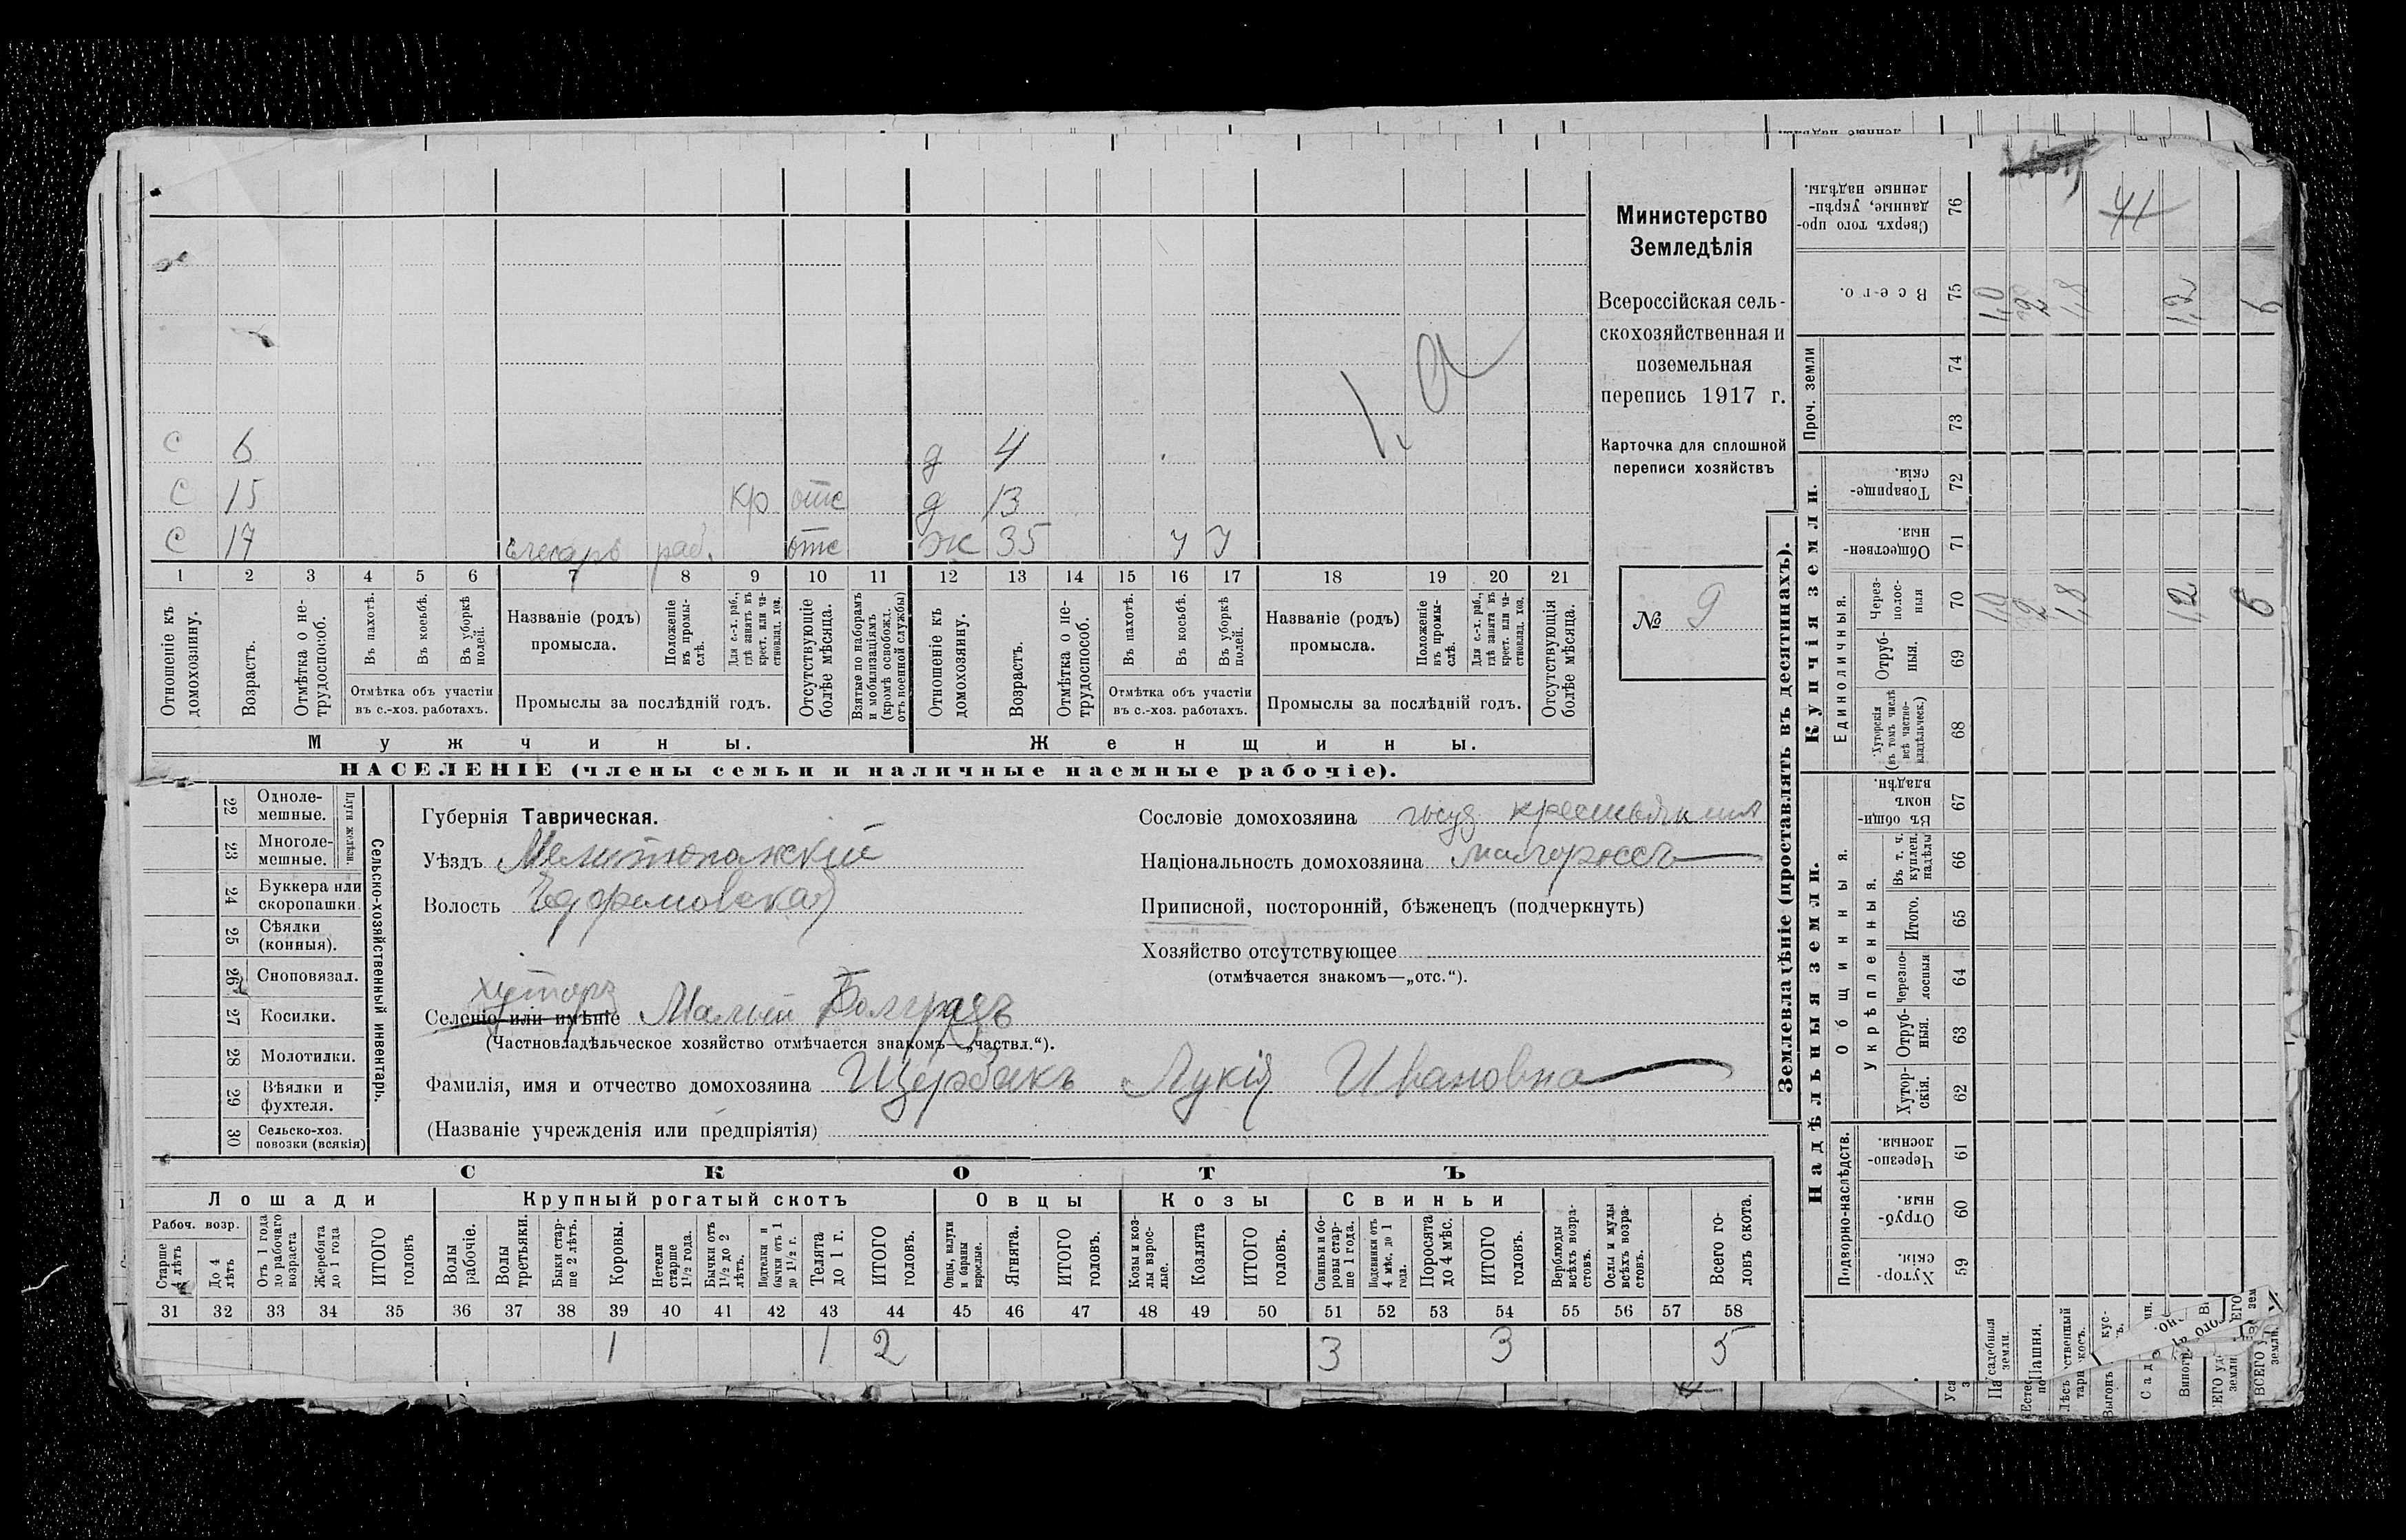 Министерство
Земледѣлія
Всероссійская сель-
скохозяйственная и
поземельная
перепись 1917 г.
Карточка для сплошной
переписи хозяйствъ
№ 9
1.а
с 6 д 4
с 15 кр отс д 13
с 17 слесарь раб. отс ж 35 у у
1 2 3 4 5 6 7 8 9 10 11 12 13 14 15 16 17 18 19 20 21
Отношеніе къ домохозяину.
Возрастъ.
Отмѣтка о не-трудоспособ.
Въ пахотѣ.
Въ косьбѣ.
Въ уборкѣ полей.
Отмѣтка объ участіи
въ с.-хоз. работахъ.
Названіе (родъ)
промысла.
Положеніе въ промы-слѣ.
Для с.-х. раб., гдѣ занятъ въ крест. или ча-стновлад. хоз.
Промыслы за послѣдній годъ.
Отсутствующіе болѣе мѣсяца.
Взятые по наборамъ и мобилизаціямъ (кромѣ освобожд. отъ военной службы)
Отношеніе къ домохозяину.
Возрастъ.
Отмѣтка о не-трудоспособ.
Въ пахотѣ.
Въ косьбѣ.
Въ уборкѣ полей.
Отмѣтка объ участіи
въ с.-хоз. работахъ.
Названіе (родъ)
промысла.
Положеніе въ промы-слѣ.
Для с.-х. раб., гдѣ занята въ крест. или ча-стновлад. хоз.
Промыслы за послѣдній годъ.
Отсутствующія болѣе мѣсяца.
Мужчины. Женщины.
НАСЕЛЕНІЕ (члены семьи и наличные наемные рабочіе).
Сельско-хозяйственный инвентарь.
Плуги желѣзн.
22 Одноле-мешные.
23 Многоле-мешные.
24 Буккера или скоропашки.
25 Сѣялки (конныя).
26 Сноповязал.
27 Косилки.
28 Молотилки.
29 Вѣялки и фухтеля.
30 Сельско-хоз. повозки (всякія)
Губернія Таврическая.
Уѣздъ Мелитопольскій
Волость Ефремовская
хуторъ
Селеніе или имѣніе Малый Болградъ
(Частновладѣльческое хозяйство отмѣчается знакомъ—„частвл.“).
Фамилія, имя и отчество домохозяина Щербакъ Лукія Ивановна
(Названіе учрежденія или предпріятія)
Сословіе домохозяина госуд крестьянина
Національность домохозяина малороссъ
Приписной, посторонній, бѣженецъ (подчеркнуть)
Хозяйство отсутствующее
(отмѣчается знакомъ—„отс.“).
СКОТЪ
Лошади Крупный рогатый скотъ Овцы Козы Свиньи
Рабоч. возр.
Старше 4 лѣтъ
До 4 лѣтъ
Отъ 1 года до рабочаго возраста
Жеребята до 1 года
ИТОГО головъ
Волы рабочіе.
Волы третьяки.
Быки стар-ше 2 лѣтъ.
Коровы.
Нетели старше 1½ года.
Бычки отъ 1½ до 2 лѣтъ.
Подтелки и бычки отъ 1 до 1½ г.
Телята до 1 г.
ИТОГО головъ.
Овцы, валухи и бараны взрослые.
Ягнята.
ИТОГО головъ.
Козы и коз-лы взрос-лые.
Козлята
ИТОГО головъ.
Свиньи и бо-ровы стар-ше 1 года.
Подсвинки отъ 4 мѣс. до 1 года.
Поросята до 4 мѣс.
ИТОГО головъ.
Верблюды всѣхъ возра-стовъ.
Ослы и мулы всѣхъ возра-стовъ.
Всего го-ловъ скота.
31 32 33 34 35 36 37 38 39 40 41 42 43 44 45 46 47 48 49 50 51 52 53 54 55 56 57 58
1 1 2 3 3 5
Землевладѣніе (проставлять въ десятинахъ).
Купчія земли.
Надѣльныя земли.
76 Сверхъ того про-данные, укрѣп-ленные надѣлы.
41
75 Всего. 1,0 2 1,8 1,2 6
Проч. земли
74
73
72 Товарище-скія.
71 Обществен-ныя.
Единоличныя.
70 Через-полос-ныя 1,0 2 1,8 1,2 6
69 Отруб-ныя.
68 Хуторскія (въ томъ числѣ всѣ частно-владѣльческ.)
Общинныя.
67 Въ общин-номъ владѣн.
Укрѣпленныя.
66 Въ т. ч. куплен. надѣлы
65 Итого.
64 Черезпо-лосныя
63 Отруб-ныя.
62 Хутор-скія.
Подворно-наслѣдств.
61 Черезпо-лосныя.
60 Отруб-ныя.
59 Хутор-скія.
Усадебныя земли.
Пашня.